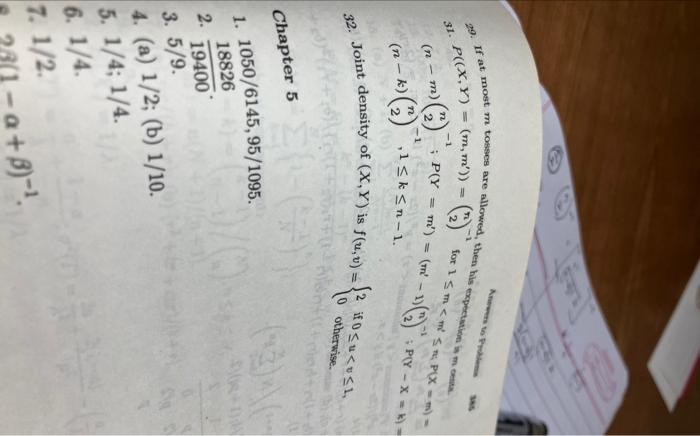 Answers to Problems 385
29. If at most m tosses are allowed, then his expectation is m cents.
31. P((X, Y) = (m, m′)) = \binom{n}{2}^{-1} for 1 ≤ m < m′ ≤ n; P(X = m) =
(n − m) \binom{n}{2}^{-1}; P(Y = m′) = (m′ − 1)\binom{n}{2}^{-1}; P(Y − X = k) =
(n − k) \binom{n}{2}^{-1}, 1 ≤ k ≤ n − 1.
32. Joint density of (X, Y) is f(u, v) = {2 if 0 ≤ u < v ≤ 1,
0 otherwise.
Chapter 5
1. 1050/6145, 95/1095.
2. 18826/19400.
3. 5/9.
4. (a) 1/2; (b) 1/10.
5. 1/4; 1/4.
6. 1/4.
7. 1/2.
2β(1 − α + β)^{-1}.